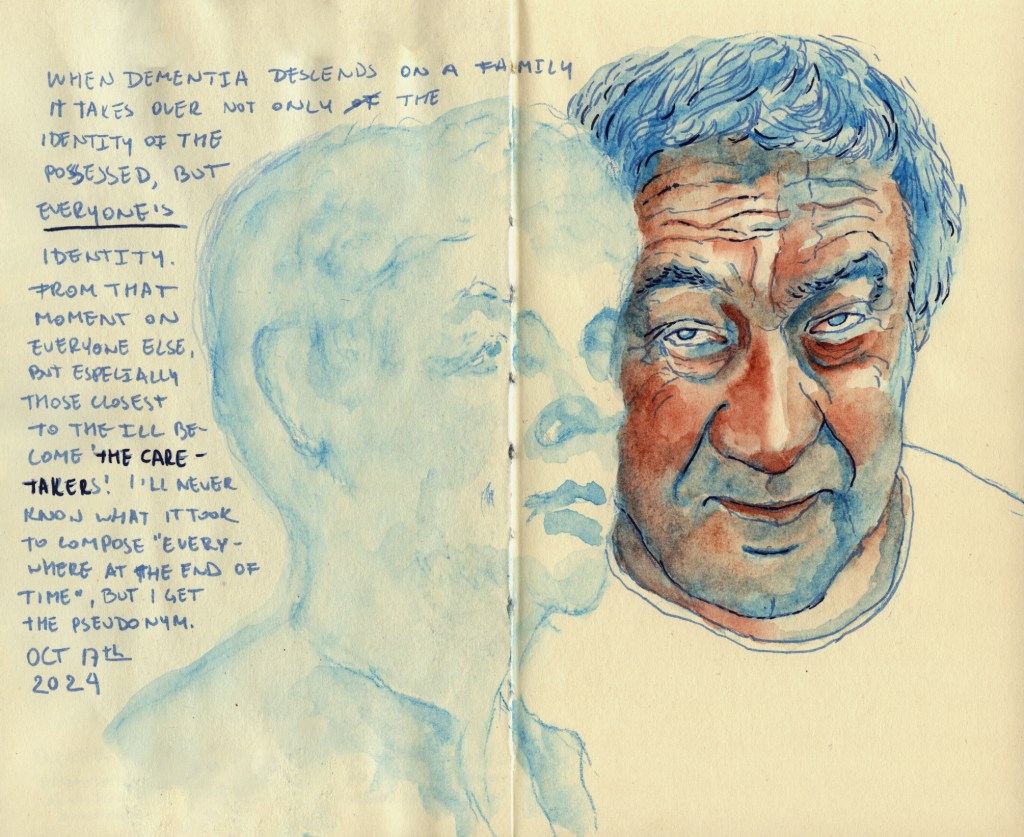 WHEN DEMENTIA DESCENDS ON A FAMILY
IT TAKES OVER NOT ONLY OF THE
IDENTITY OF THE
POSSESSED, BUT
EVERYONE'S
IDENTITY.
FROM THAT
MOMENT ON
EVERYONE ELSE,
BUT ESPECIALLY
THOSE CLOSEST
TO THE ILL BE-
COME 'THE CARE-
TAKERS'. I'LL NEVER
KNOW WHAT IT TOOK
TO COMPOSE "EVERY-
WHERE AT THE END OF
TIME", BUT I GET
THE PSEUDONYM.
OCT 17th
2024